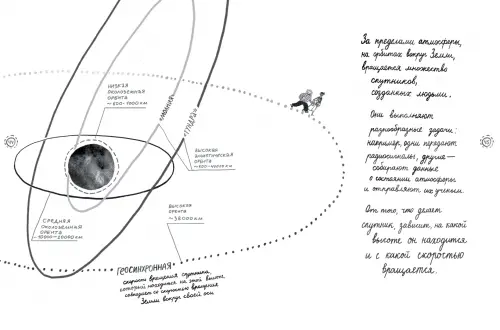 НИЗКАЯ
ОКОЛОЗЕМНАЯ
ОРБИТА
«МОЛНИЯ»
«ТУНДРА»
ВЫСОКАЯ
ЭЛЛИПТИЧЕСКАЯ
ОРБИТА
СРЕДНЯЯ
ОКОЛОЗЕМНАЯ
ОРБИТА
ВЫСОКАЯ
ОРБИТА
ГЕОСИНХРОННАЯ
скорость вращения спутника,
который находится на этой высоте,
совпадает со скоростью вращения
Земли вокруг своей оси
За пределами атмосферы,
на орбитах вокруг Земли,
вращается множество
спутников,
созданных людьми.
Они выполняют
разнообразные задачи:
например, одни передают
радиосигналы, другие —
собирают данные
о состоянии атмосферы
и отправляют их ученым.
От того, что делает
спутник, зависит, на какой
высоте он находится
и с какой скоростью
вращается.